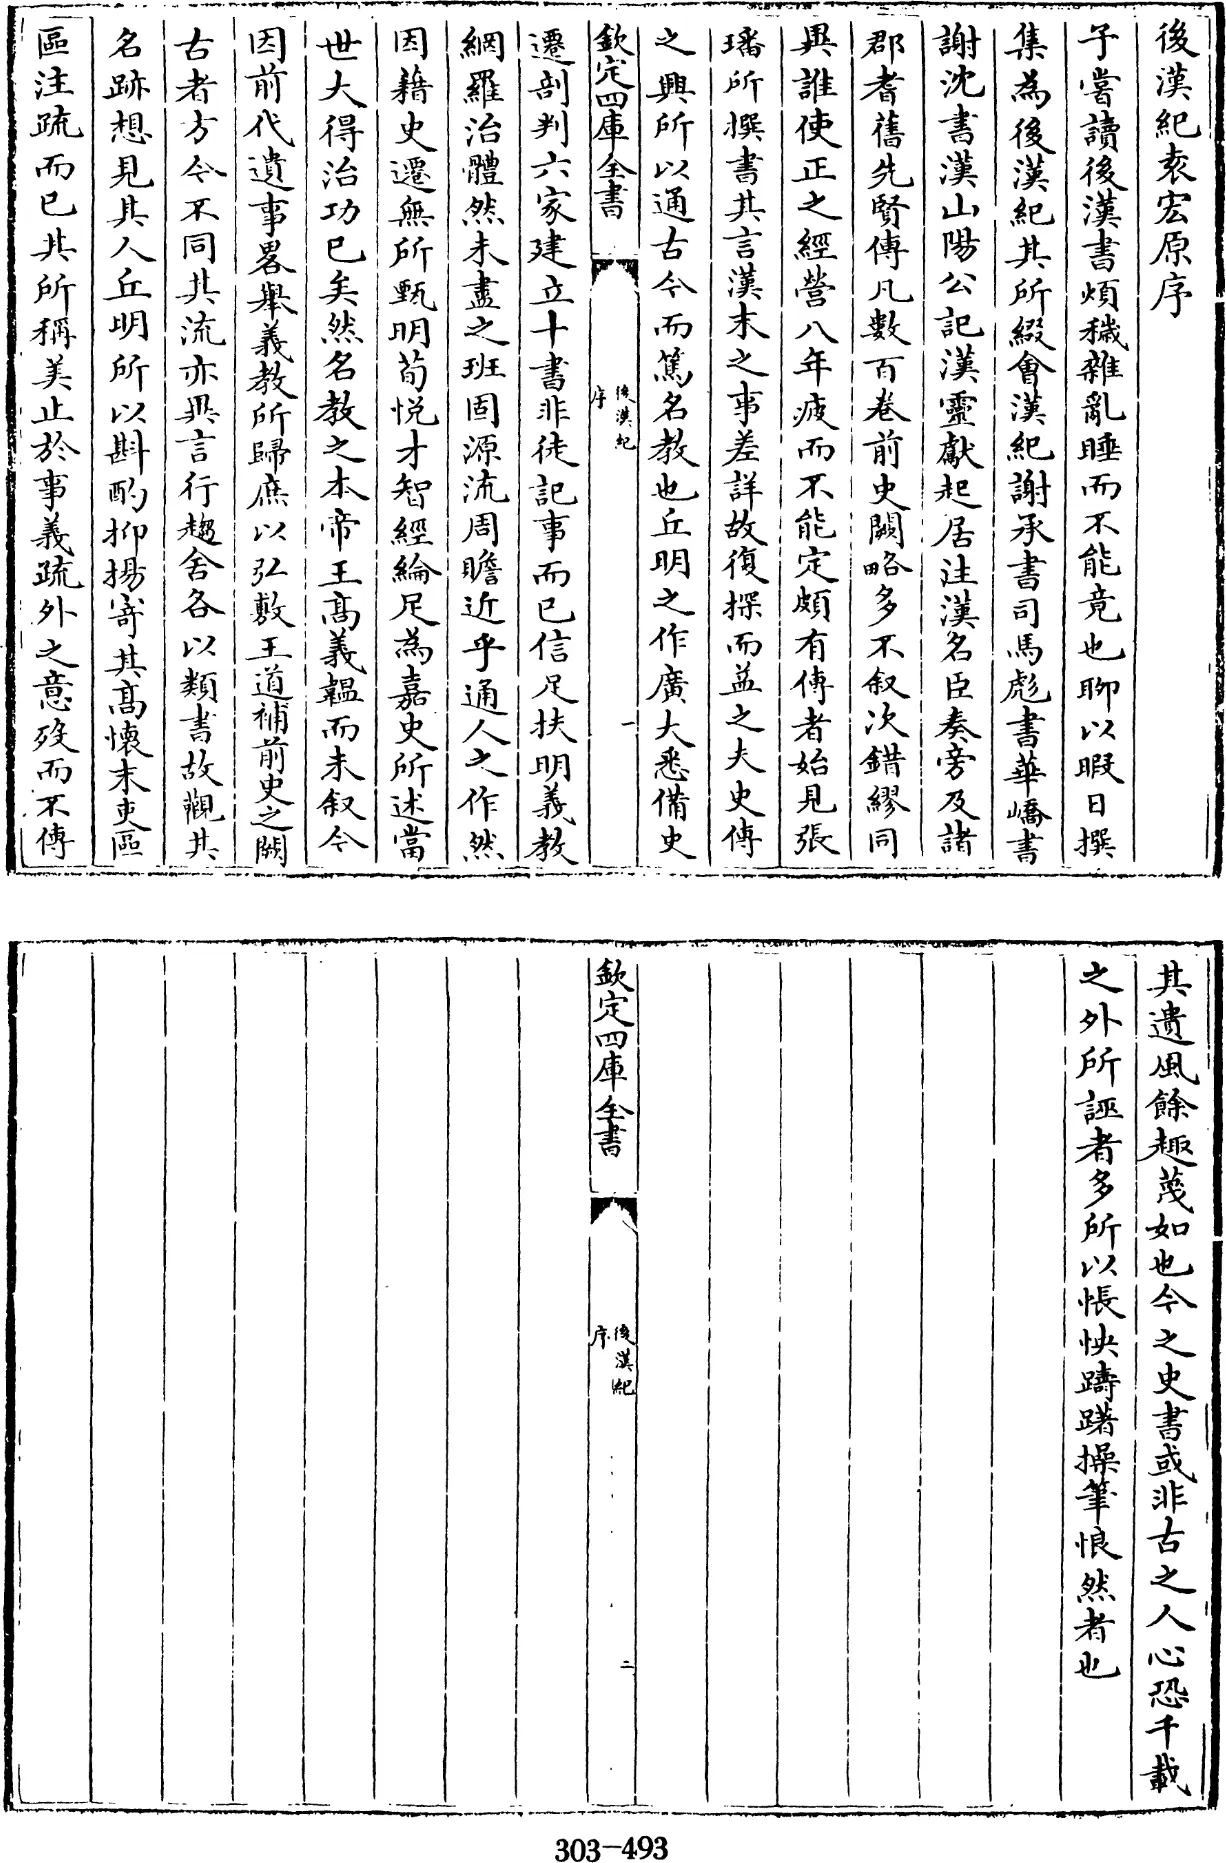 後漢紀袁宏原序
予嘗讀後漢書煩穢雜亂睡而不能竟也聊以暇日撰
集為後漢紀其所綴會漢紀謝承書司馬彪書華嶠書
謝沈書漢山陽公記漢靈獻起居注漢名臣奏旁及諸
郡耆舊先賢傳凡數百卷前史闕略多不叙次錯繆同
異誰使正之經營八年疲而不能定頗有傳者始見張
璠所撰書其言漢末之事差詳故復探而益之夫史傳
之興所以通古今而篤名教也丘明之作廣大悉備史
欽定四庫全書
後漢紀
序
一
遷剖判六家建立十書非徒記事而已信足扶明義教
網羅治體然未盡之班固源流周贍近乎通人之作然
因藉史遷無所甄明荀悅才智經綸足為嘉史所述當
世大得治功已矣然名教之本帝王高義韞而未叙今
因前代遺事畧舉義教所歸庶以弘敷王道補前史之闕
古者方今不同其流亦異言行趨舍各以類書故觀其
名跡想見其人丘明所以斟酌抑揚寄其高懷末吏區
區注疏而已其所稱美止於事義疏外之意歿而不傳
其遺風餘趣蔑如也今之史書或非古之人心恐千載
之外所誣者多所以悵怏躊躇操筆悢然者也
欽定四庫全書
後漢紀
序
二
303-493